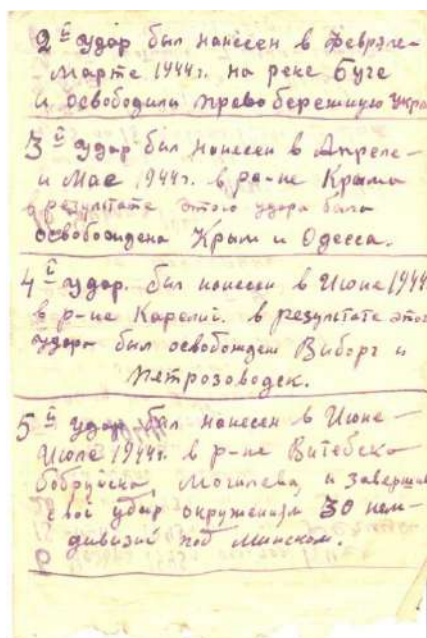 2й удар был нанесен в Феврале-
Марте 1944г. на реке Буге
и освободили право бережную Укра
3й удар был нанесен в Апреле-
и Мае 1944г. в ра-не Крыма
в результате этого удара была
освобождена Крым и Одесса.
4й удар. был нанесен в Июне 1944
в р-не Карелии. в результате этог
удара был освобожден Виборг и
Петрозоводск.
5й удар был нанесен в Июне-
Июле 1944г. в р-не Витебска
Бобруйска, Могилева, и завершив
свой удар окружением 30 нем-
дивизий под Минском.